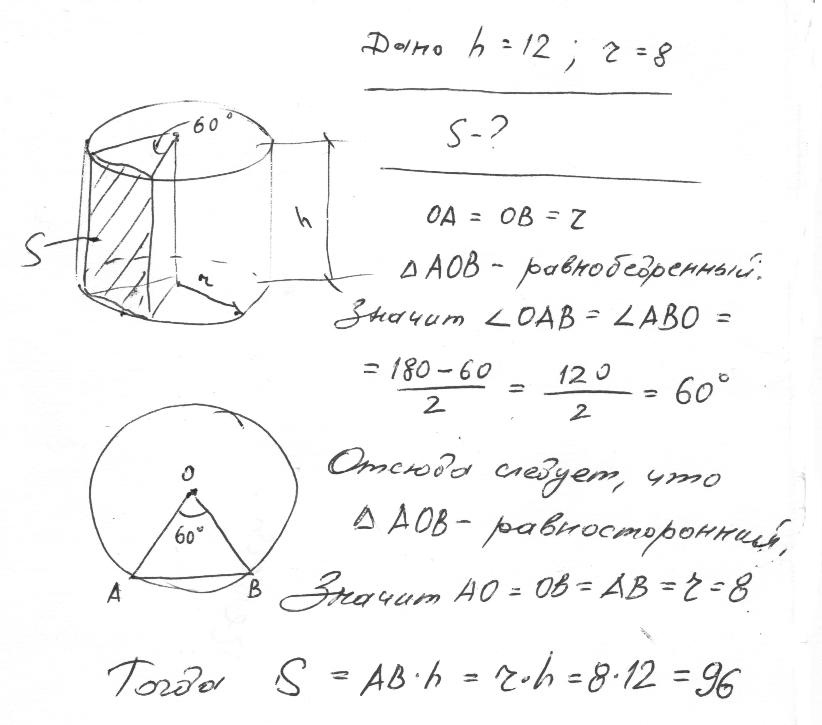 Дано h = 12 ; r = 8
60°
S - ?
h
S
r
OA = OB = r
Δ AOB - равнобедренный.
Значит ∠OAB = ∠ABO =
= 180 - 60 / 2 = 120 / 2 = 60°
O
60°
A
B
Отсюда следует, что
Δ AOB - равносторонний,
Значит AO = OB = AB = r = 8
Тогда S = AB · h = r · h = 8 · 12 = 96